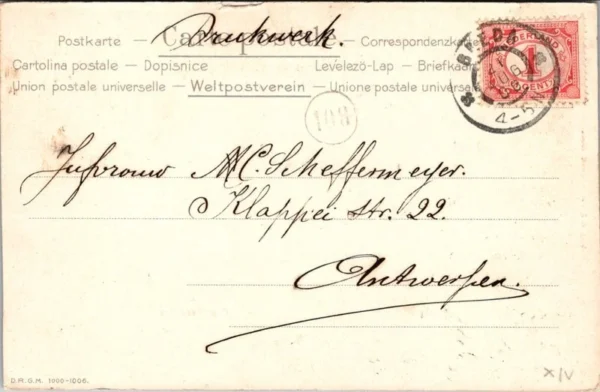 Drukwerk.
Postkarte — Carte postale — Correspondenzkarte
Cartolina postale — Dopisnice Levelező-Lap — Briefkaart
Union postale universelle — Weltpostverein — Unione postale universale
BREDA
4-5
NEDERLAND
1
CENT
108
Jufvrouw M.C. Scheffermeyer.
Klappei str. 22.
Antwerpen.
D.R.G.M. 1000-1006.
X/V